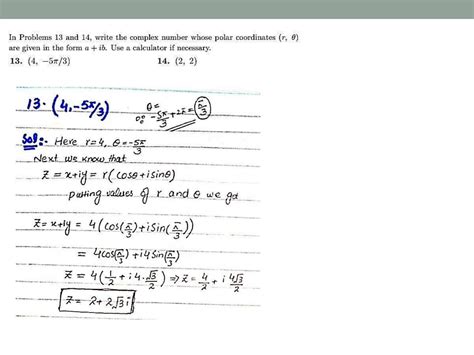 In Problems 13 and 14, write the complex number whose polar coordinates (r, θ)
are given in the form a + ib. Use a calculator if necessary.
13. (4, −5π/3) 14. (2, 2)
13. (4, -5π/3)
θ =
∵ -5π/3 + 2π = π/3
Sol:- Here r=4, θ = -5π/3
Next we know that
Z = x+iy = r(cosθ+isinθ)
putting values of r and θ we get
Z = x+iy = 4(cos(π/3)+iSin(π/3))
= 4cos(π/3)+i4Sin(π/3)
Z = 4(1/2 + i4·√3/2) ⇒ Z = 4/2 + i 4√3/2
Z = 2+2√3i